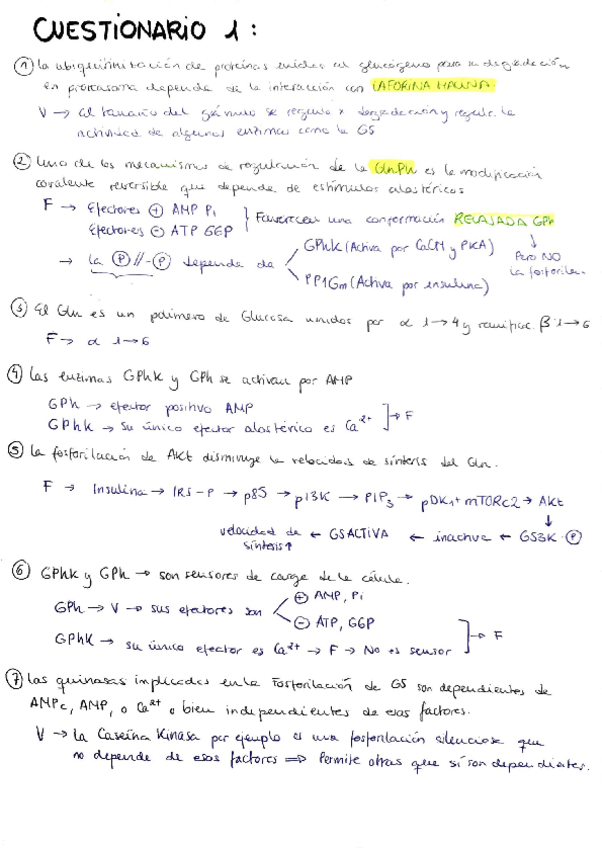 CUESTIONARIO 1:
① La ubiquitinización de proteínas unidas al glucógeno para su degradación
en proteasoma depende de la interacción con LAFORINA MALINA.
V → el tamaño del gránulo se regula x degradación y regula la
actividad de algunas enzimas como la GS
② Uno de los mecanismos de regulación de la GlnPh es la modificación
covalente reversible que depende de estímulos alostéricos
F → Efectores ⊕ AMP Pi
Efectores ⊖ ATP G6P
Favorecen una conformación RELAJADA GPh
↓ Pero NO la fosforila.
→ la Ⓟ//-Ⓟ depende de
GPhK (Activa por CaCM y PKA)
PP1Gm (Activa por insulina)
③ El Gln es un polímero de Glucosa unidos por α 1→4 y ramific. β 1→6
F → α 1→6
④ Las enzimas GPhK y GPh se activan por AMP
GPh → efector positivo AMP
GPhK → su único efector alostérico es Ca²⁺
→ F
⑤ La fosforilación de Akt disminuye la velocidad de síntesis del Gln.
F → Insulina → IRS-P → p85 → pI3K → PIP₃ → pDK1 + mTORC2 → Akt
↓
velocidad de síntesis ↑ ← GS ACTIVA ← inactiva ← GS3K-Ⓟ
⑥ GPhK y GPh → son sensores de carga de la célula.
GPh → V → sus efectores son
⊕ AMP, Pi
⊖ ATP, G6P
GPhK → su único efector es Ca²⁺ → F → No es sensor
→ F
⑦ Las quinasas implicadas en la Fosforilación de GS son dependientes de
AMPc, AMP, o Ca²⁺ o bien independientes de esos factores.
V → La Caseína Kinasa por ejemplo es una fosforilación silenciosa que
no depende de esos factores ⇒ Permite otras que sí son dependientes.